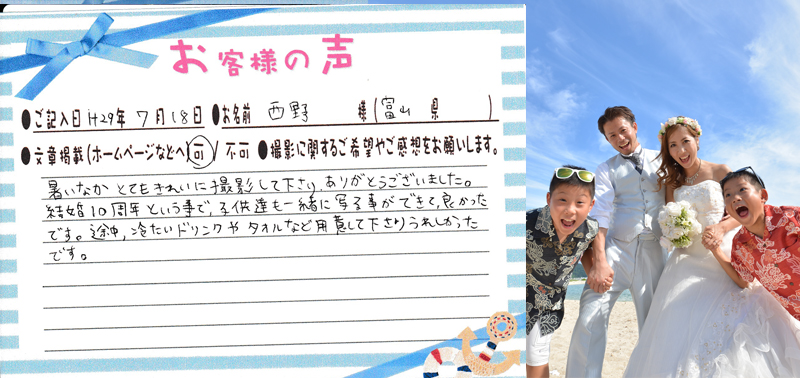 お客様の声
●ご記入日 H29年 7月18日 ●お名前 西野 様(富山 県 )
●文章掲載(ホームページなどへ) 可 / 不可 ●撮影に関するご希望やご感想をお願いします。
暑いなか とてもきれいに撮影して下さり、ありがとうございました。
結婚10周年という事で、子供達も一緒に写る事ができて、良かった
です。途中、冷たいドリンクや タオルなど用意して下さりうれしかった
です。